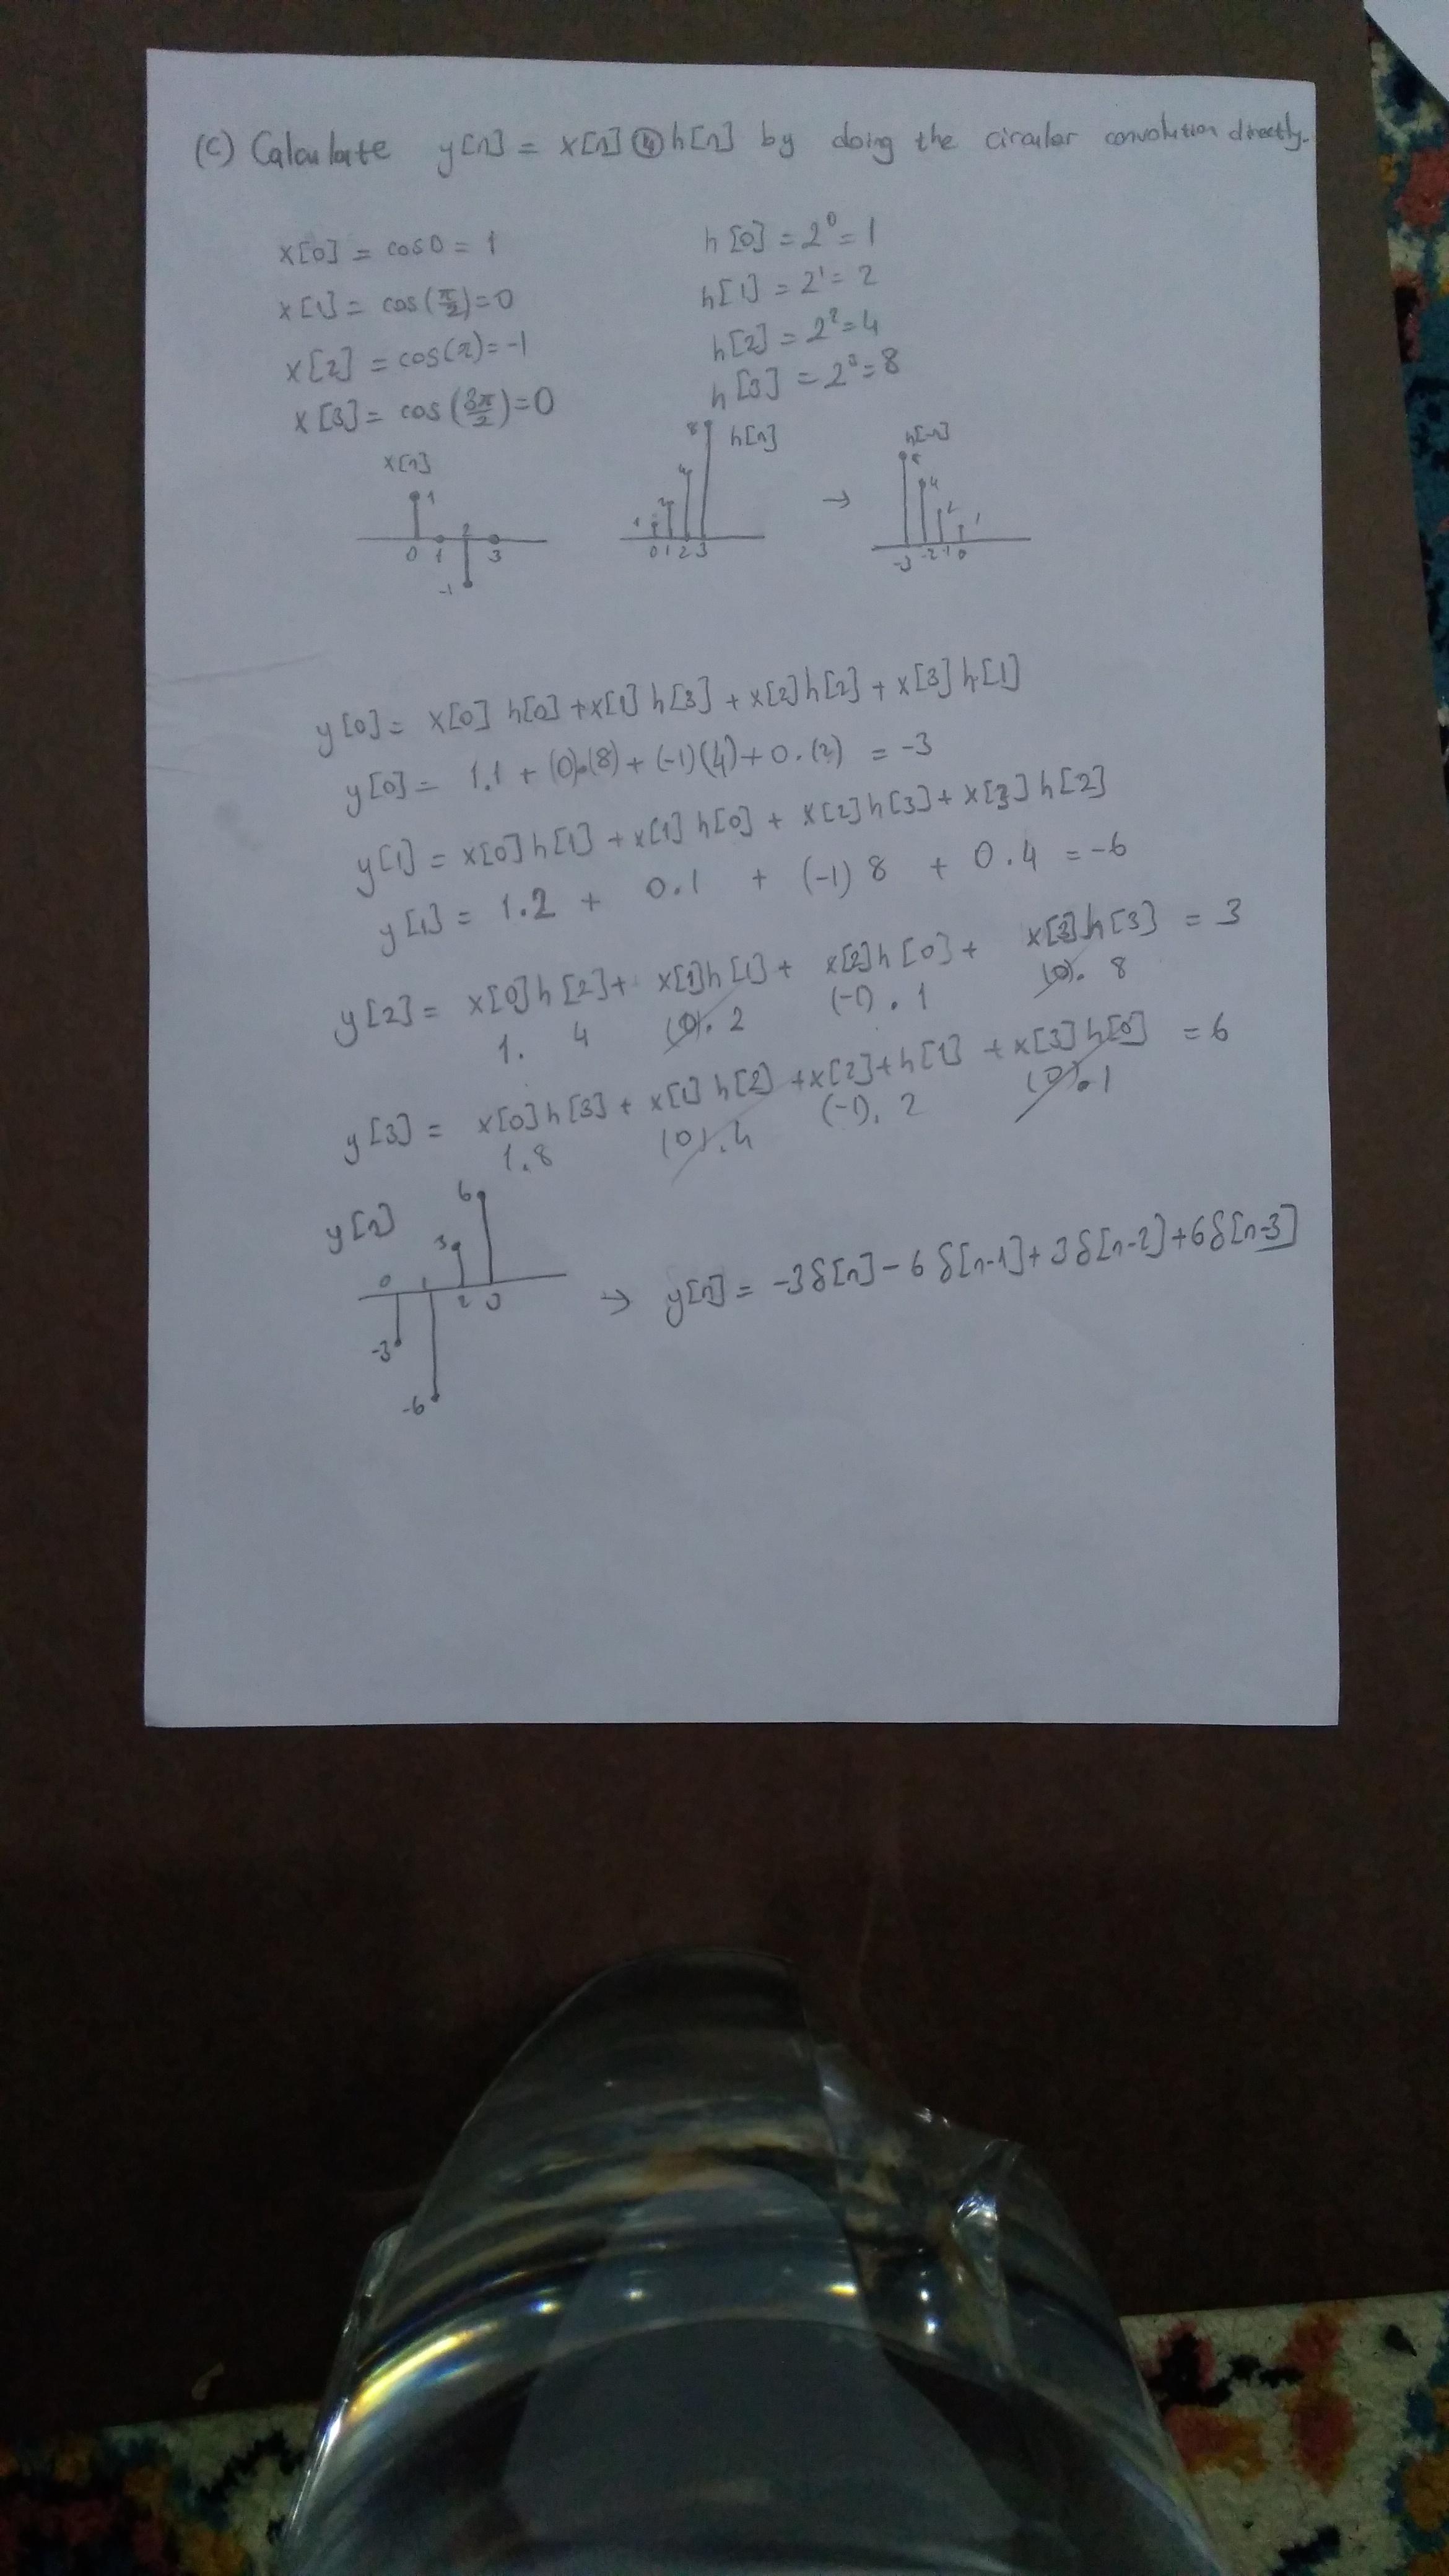 (c) Calculate y[n] = x[n] ④ h[n] by doing the circular convolution directly.
x[0] = cos0 = 1
h[0] = 2⁰ = 1
x[1] = cos(π/2) = 0
h[1] = 2¹ = 2
x[2] = cos(π) = -1
h[2] = 2² = 4
x[3] = cos(3π/2) = 0
h[3] = 2³ = 8
x[n]
1
0 1 2 3
-1
8 h[n]
4
2
1
0 1 2 3
→
h[-n]
8
4
2
1
-3 -2 -1 0
y[0] = x[0] h[0] + x[1] h[3] + x[2] h[2] + x[3] h[1]
y[0] = 1.1 + (0).(8) + (-1)(4) + 0.(2) = -3
y[1] = x[0] h[1] + x[1] h[0] + x[2] h[3] + x[3] h[2]
y[1] = 1.2 + 0.1 + (-1) 8 + 0.4 = -6
y[2] = x[0] h[2] + x[1] h[1] + x[2] h[0] + x[3] h[3] = 3
1. 4 (0). 2 (-1). 1 (0). 8
y[3] = x[0] h[3] + x[1] h[2] + x[2] + h[1] + x[3] h[0] = 6
1.8 (0).4 (-1). 2 (0).1
y[n]
6
3
0 1 2 3
-3
-6
→ y[n] = -3δ[n] - 6 δ[n-1] + 3 δ[n-2] + 6 δ[n-3]